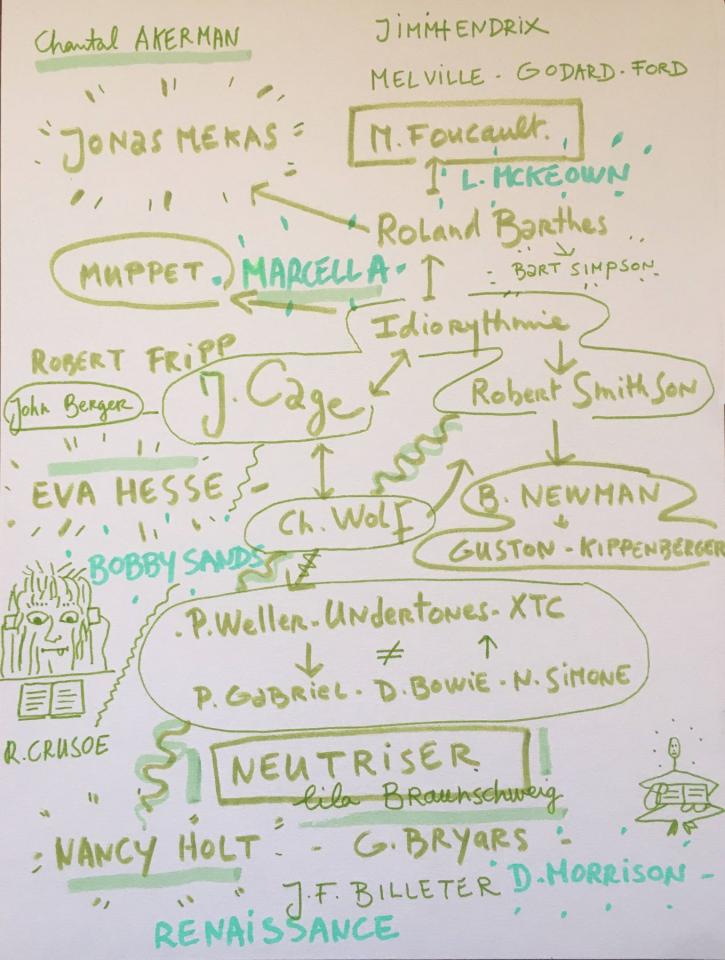 Chantal AKERMAN
JIMIHENDRIX
MELVILLE - GODARD - FORD
JONAS MEKAS
M. Foucault.
L. MCKEOWN
Roland Barthes
BART SIMPSON
MUPPET
MARCELLA
Idiorythmie
ROBERT FRIPP
J. Cage
Robert Smithson
John Berger
EVA HESSE
B. NEWMAN
Ch. Wolf
GUSTON - KIPPENBERGER
BOBBY SANDS
P. Weller - Undertones - XTC
≠
P. GABRIEL - D. BOWIE - N. SIMONE
R. CRUSOE
NEUTRISER
Lila Braunschweig
NANCY HOLT
G. BRYARS
J.F. BILLETER
D. MORRISON
RENAISSANCE